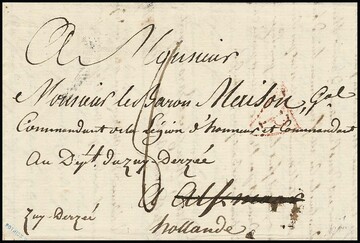 A Monsieur
Monsieur le Baron Maison, Gal
Commandant de la Légion d'honneur et Commandant
Au Dépt. du Zuy-Derzée
à Alkmaar
Zuy-Derzée
hollande